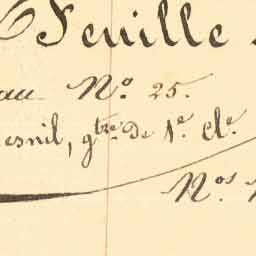 Feuille
au Nº 25.
esnil, gtre de 1e. cle.
Nos